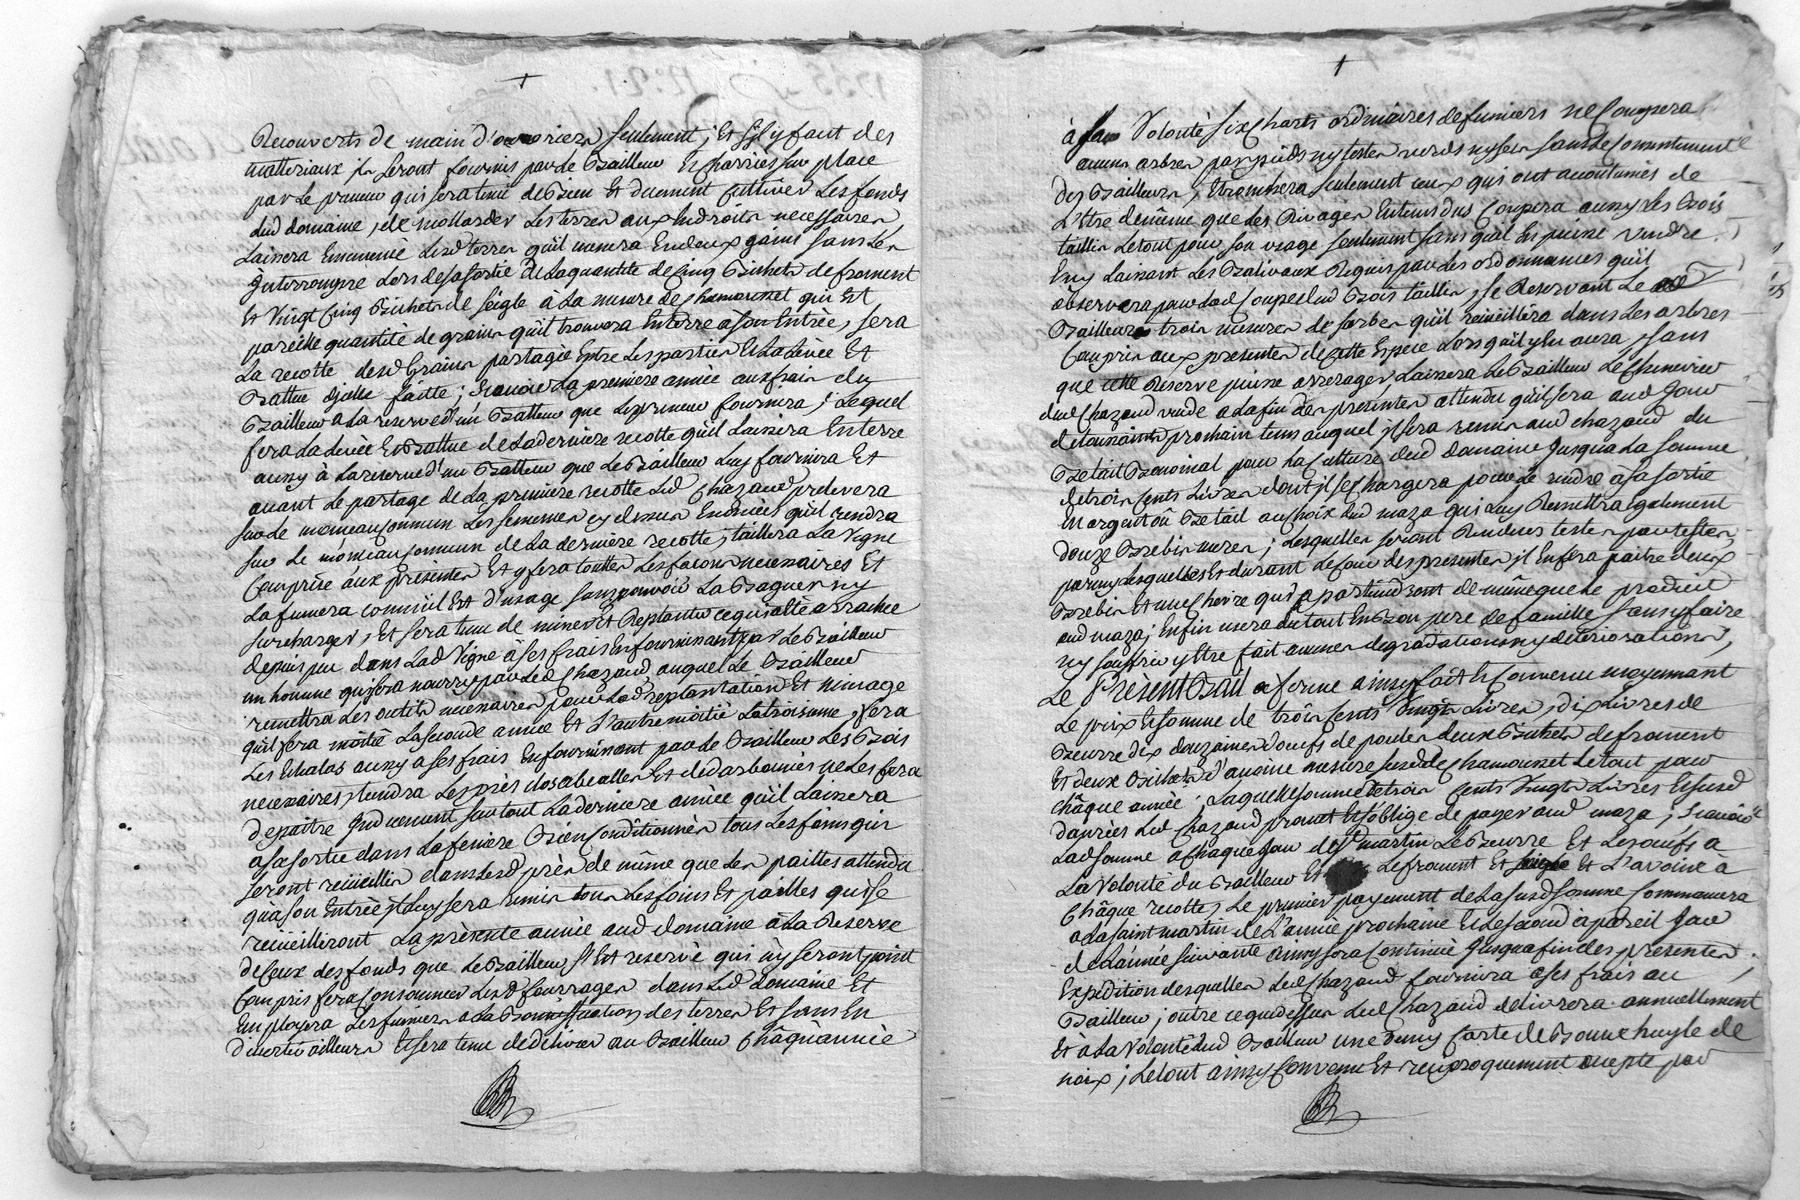 Recouverts de main d'ouvriers seulement, Et s'il y faut des
matteriaux ils seront fournis par le Bailleur Et charriés sur place
par Le preneur qui sera tenu de Bien Et duement cultiver Les fonds
dud domaine, de mollarder Les terres aux Endroits necessaires
Laissera Ensemencé Lesd terres quil En deux gains sans Les
Interrompre Lors de sa sortie de La quantité de Cinq Bichets de froment
Et Vingt Cinq Bichets de seigle à La mesure de Chamousset qui Est
pareille quantité de grains quil trouvera En terre à son Entrée, sera
La recolte desd Grains partagée Entre Les parties Et La Levée Et
Battue d'jcelle faitte; scavoir La premiere année aux frais du
Bailleur a La reserve d'un Batteur que Le preneur fournira; Lequel
fera La Levée Et Battue de La derniere recolte quil Laissera En terre
aussy à La reserve d'un Batteur que Le Bailleur Luy fournira Et
avant Le partage de La premiere recolte Led Chazaud prelevera
sur Le monceau Commun Les semences cy dessus Enoncées quil rendra
sur Le monceau Commun de La derniere recolte, taillera La Vigne
Comprise aux presentes Et y fera touttes Les facons necessaires Et
La fumera comme il Est d'usage sans pouvoir La Baguer ny
surcharger, Et sera tenu de miner Et Replanter ce qui a été arraché
depuis peu dans Lad Vigne à ses frais En fournissant par Le Bailleur
un homme qui sera nourry par Led Chazaud auquel Le Bailleur
remettra Les outils necessaires pour Lad replantation Et minage
quil fera moitié La seconde année Et L'autre moitié La troisieme, fera
Les Echalas aussy a ses frais En fournissant par Le Bailleur Les Bois
necessaires, tiendra Les prés clos abeallés Et dedarbonnés ne Les fera
depaitre Induement surtout La derniere année quil Laissera
a sa sortie dans La feniere Bien Conditionnés tous Les foins qui
seront recueillis dans Lesd prés de même que Les pailles attendu
quà son Entrée jl Luy sera remis tous Les foins Et pailles qui se
recueilliront La presente année aud domaine à La Reserve
de Ceux des fonds que Le Bailleur s'Est reservé qui n'y seront point
Compris fera Consommer Lesd fourrages dans Led Domaine Et
Employera Les fumiers a La Bonnification des terres Et sans En
divertir ailleurs Et sera tenu de delivrer au Bailleur Châqu'année
à sa Volonté six Chars ordinaires de fumiers ne Coupera
aucuns arbres par pieds ny testes verds ny secs sans Le Consentement
des Bailleurs, Ebranchera seulement ceux qui ont acoutumés de
L'être de même que Les Rivages En tems dus Coupera aussy Les Bois
taillis Le tout pour son usage seulement sans quil En puisse vendre
En y Laissant Les Balivaux Requis par Les ordonnances quil
observera pour La Coupe dud Bois taillis, se Reservant Le
Bailleur trois mesures de sorbes quil recueillera dans Les arbres
Compris aux presentes de Cette Espece Lors quil y En aura, sans
que cette Reserve puisse arrerager, Laissera Le Bailleur Le Chenevier
dud Chazaud vuide a La fin des presentes attendu quil sera aud Jour
de toussaints prochain tems auquel jl sera remis aud chazaud du
Betail Bovoinal pour La Culture dud domaine Jusqua La somme
de trois Cents Livres dont jl se Chargera pour Le rendre à sa sortie
En argent ôu Betail au choix dud maza qui Luy Remettra Egalement
douze Brebis meres; Lesquelles seront Renduës teste par teste,
parmy Lesquelles Et durant Le Cour des presentes, jl En fera paitre deux
Brebis Et une Chevre qui apartiendront de même que Le produit
aud maza; Enfin usera du tout En Bon pere de famille sans y faire
ny souffrir y être fait aucunes degradations ny deteriorations,
Le Présent Bail a ferme ainsy fait Et Convenu moyennant
Le prix Et somme de trois Cents Vingt Livres, dix Livres de
Beurre dix douzaines d'oeufs de poules deux Bichets de froment
Et deux Bichets d'avoine mesure susd de Chamousset Le tout pour
châque année; Laquelle somme de trois Cents Vingt Livres Et susd
danrées Led Chazaud promet Et s'oblige de payer aud maza; scavoir
Lad somme a Chaque Jour de St martin Le Beurre Et Les oeufs a
La Volonté du Bailleur Et Le froment Et Et L'avoine à
Châque recolte, Le premier payement de La susd somme Commancera
a La saint martin de L'année prochaine Et Le second a pareil Jour
de L'année suivante ainsy sera Continué Jusqua fin des presentes.
Expédition desquelles Led Chazaud fournira a ses frais au
Bailleur; outre ce que dessus Led Chazaud delivrera annuellement
Et à La Volonté dud Bailleur une demy Carte de Bonne huyle de
noix; Le tout ainsy Convenu Et reciproquement accepté par